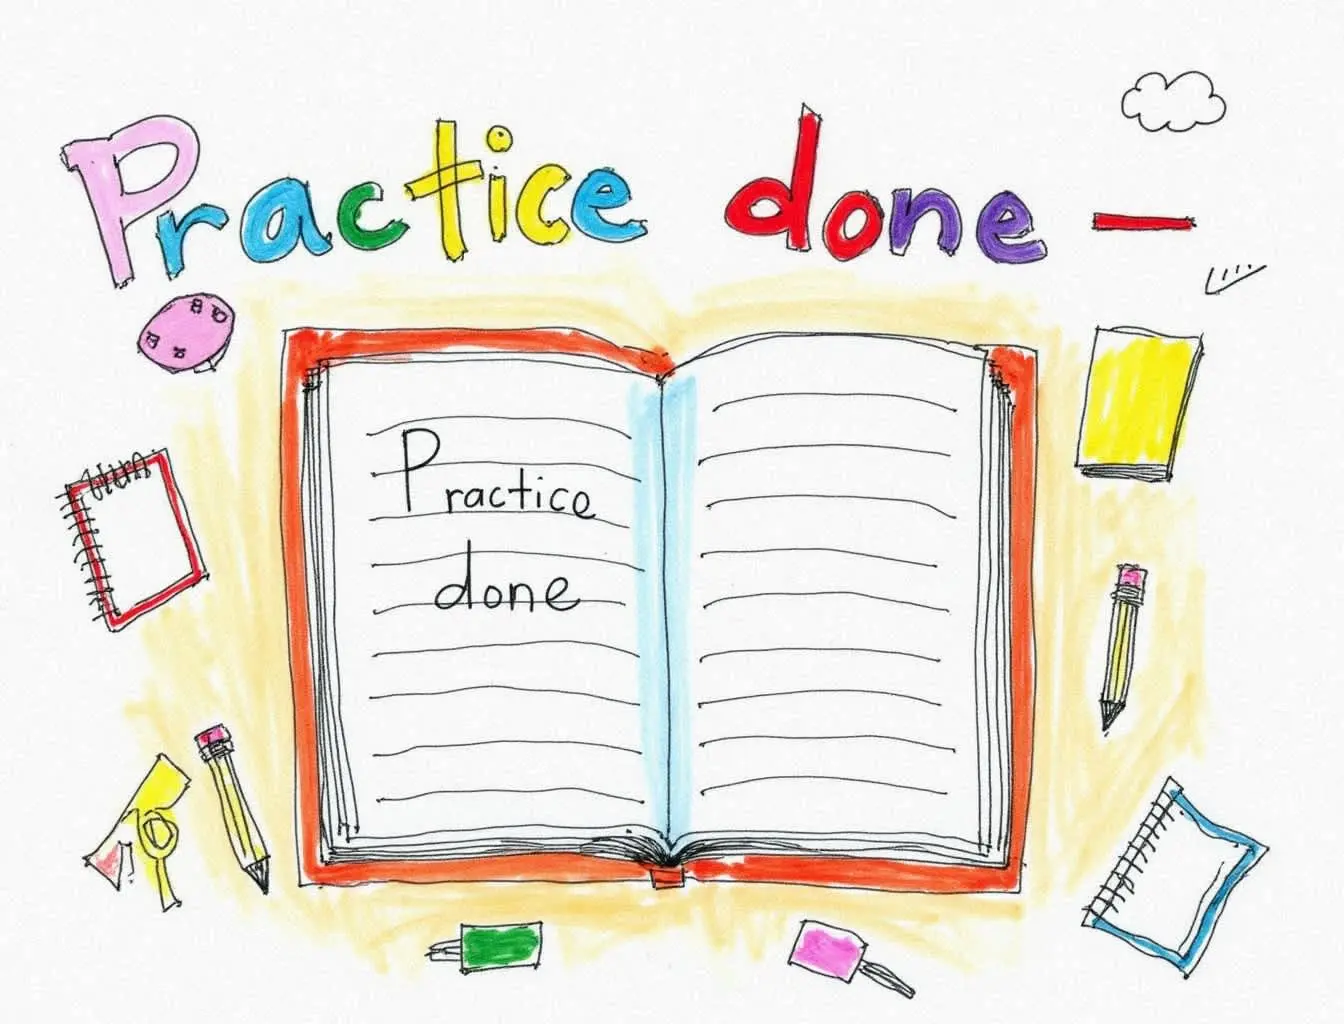 Practice done –
Practice
done